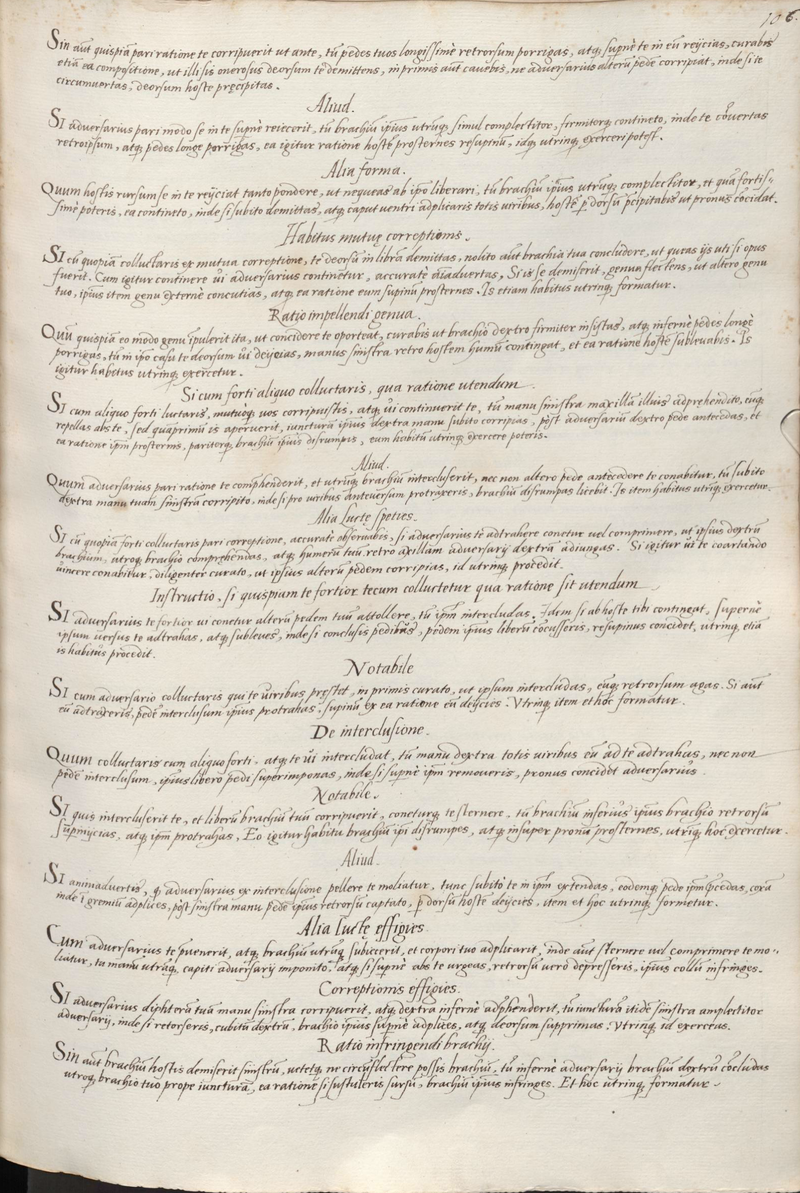 106.
Sin aūt quispiā pari ratione te corripuerit ut ante, tū pedes tuos longissimè retrorsum porrigas, atq; supnè te in eū reijcias, curabis
etiā ea compositione, ut illi sis onerosus deorsum te demittens, inprimis aūt cavebis, ne adversarius alterū pede corripiat, inde si te
circumvertas, deorsum hoste precipitas.
Aliud.
SI adversarius pari modo se in te supnè reiecerit, tu brachiū ipius utrūq; simul complectitor, firmiterq; contineto, inde te cōvertas
retroipsum, atq; pedes longe porrigas, ea igitur ratione hostē prosternes resupinū, idq; utrinq; exerceri potest.
Alia forma.
Quum hostis rursum se in te reijciat tanto pondere, ut nequeas ab ipo liberari, tū brachiū ipius utrūq; complectitor, et qua fortis-
simè poteris, ea contineto, inde si subito demittas, atq; caput ventri adplicaris totis viribus, hostē p dorsū pcipitabis ut pronus cōcidat.
Habitus mutuę correptionis.
SI cū quopiā colluctaris ex mutua correptione, te deorsū in librā demittas, nolito aūt brachia tua concludere, ut queas ijs uti si opus
fuerit. Cum igitur continere vi adversarius continetur, accuratè aīadvertas, Si is se demiserit, genua flectens, ut altero genu
tuo, ipius item genu externè concutias, atq; ea ratione eum supinū prosternes. Is etiam habitus utrinq; formatur.
Ratio impellendi genua.
Quū quispiā eo modo genu ipulerit ita, ut concidere te oporteat, curabis ut brachio dextro firmiter insistas, atq; infernè pedes longè
porrigas, tū in ipo casu te deorsum vi deijcias, manus sinistra retro hostem humū contingat, et ea ratione hostē sublevabis. Is
igitur habitus utrinq; exercetur.
Si cum forti aliquo colluctaris, qua ratione utendum.
SI cum aliquo forti luctaris, mutuoq; vos corripuistis, atq; vi continuerit te, tū manu sinistra maxillā illius adprehendito, eūq;
repellas abs te, sed quāprimū is aperuerit, iuncturā ipius dextra manu subito corripias, pōst adversariū dextro pede antecedas, et
ea ratione ipm prosternis, pariterq; brachiū ipius disrumpis, eum habitū utrinq; exercere poteris.
Aliud.
Quum adversarius pari ratione te comphenderit, et utrūq; brachiū intercluserit, nec non altero pede antecedere te conabitur, tū subito
dextra manu tuam sinistrā corripito, inde si pro viribus anteversum protraxeris, brachiū disrumpas licebit. Is item habitus utriq; exercetur.
Alia luctę species.
SI cū quopiā forti colluctaris pari correptione, accuratè observabis, si adversarius te adtrahere conetur vel comprimere, ut ipsius dextrū
brachium, utroq; brachio comprehendas, atq; humerū tuū retro axillam adversarij dextrā adiungas. Si igitur vi te coartando
vincere conabitur, diligenter curato, ut ipsius alterū pedem corripias, id utrinq; procedit.
Instructio, si quispiam te fortior tecum colluctetur qua ratione sit utendum.
SI adversarius te fortior vi conetur alterū pedem tuū attollere, tū ipm intercludas. Idem si ab hoste tibi contingat, supernè
ipsum versus te adtrahas, atq; subleves, inde si conclusis pedibus, pedem ipius liberū cōcusseris, resupinus concidet, utrinq; etiā
is habitus procedit.
Notabile
SI cum adversario colluctaris qui te viribus prestet, in primis curato, ut ipsum intercludas, eūq; retrorsum agas. Si aūt
eū adtraxeris, pedē interclusum ipius protrahas, supinū ex ea ratione eū deijcies. Utrinq; item et hoc formatur.
De interclusione.
Quum colluctaris cum aliquo forti, atq; te vi intercludat, tū manu dextra totis viribus eū ad te adtrahas, nec non
pedē interclusum, ipius libero pedi superimponas, inde si supnè ipm removeris, pronus concidet adversarius.
Notabile.
SI quis intercluserit te, et liberū brachiū tuū corripuerit, conetur; te sternere, tū brachiū inferius ipius brachio retrorsū
supinijcias, atq; ipm protrahas, Eo igitur habitu brachiū ipi disrumpes, atq; insuper pronū prosternes, utriq; hoc exercetur.
Aliud.
SI animadvertis, q adversarius ex interclusione pellere te moliatur, tunc subito te in ipm extendas, eodemq; pede ipm pcedas, coxā
inde i gremiū adplices, pōst sinistra manu pede ipius retrorsū captato, p dorsū hostē deijcies, item et hoc utrinq; formetur.
Alia luctę effigies
Cum adversarius te pvenerit, atq; brachiū utrūq; subiecerit, et corpori tuo adplicarit, inde aūt sternere vel comprimere te mo-
liatur, tu manū utrāq; capiti adversarij imponito, atq; si supnè abs te urgeas, retrorsū verò depresseris, ipius collū infringes.
Correptionis effigies.
SI adversarius diphterā tuā manu sinistra corripuerit, atq; dextra infernè adphenderit, tū iuncturā itidē sinistra amplectitor
adversarij, inde si retorseris, cubitū dextrū, brachio ipius supnè adplices, atq; deorsum supprimas. Utrinq; id exerceas.
Ratio infringendi brachij.
Sin aūt brachiū hostis demiserit sinistrū, vetetq; ne circūflectere possis brachiū, tū infernè adversarij brachiū dextrū cōcludas
utroq; brachio tuo prope iuncturā, ea ratione si sustuleris sursū, brachiū ipius infringes. Et hoc utrinq; formatur.